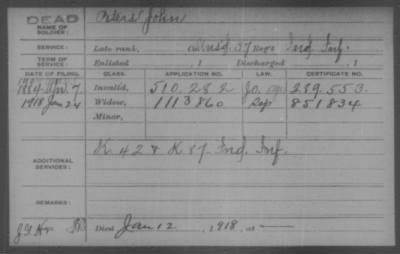 DEAD
NAME OF SOLDIER: Peters John
SERVICE: Late rank, Co. Unasgd. 37 Reg't Ind. Inf.
TERM OF SERVICE: Enlisted , 1 Discharged , 1
DATE OF FILING. CLASS. APPLICATION NO. LAW. CERTIFICATE NO.
1884 7 Invalid, 510.282 289.553.
1918 Jan 24 Widow, 1113860 Sep 851834
Minor,
ADDITIONAL SERVICES: K. 42 & K 87 Ind. Inf.
REMARKS:
Died Jan 12, 1918, at